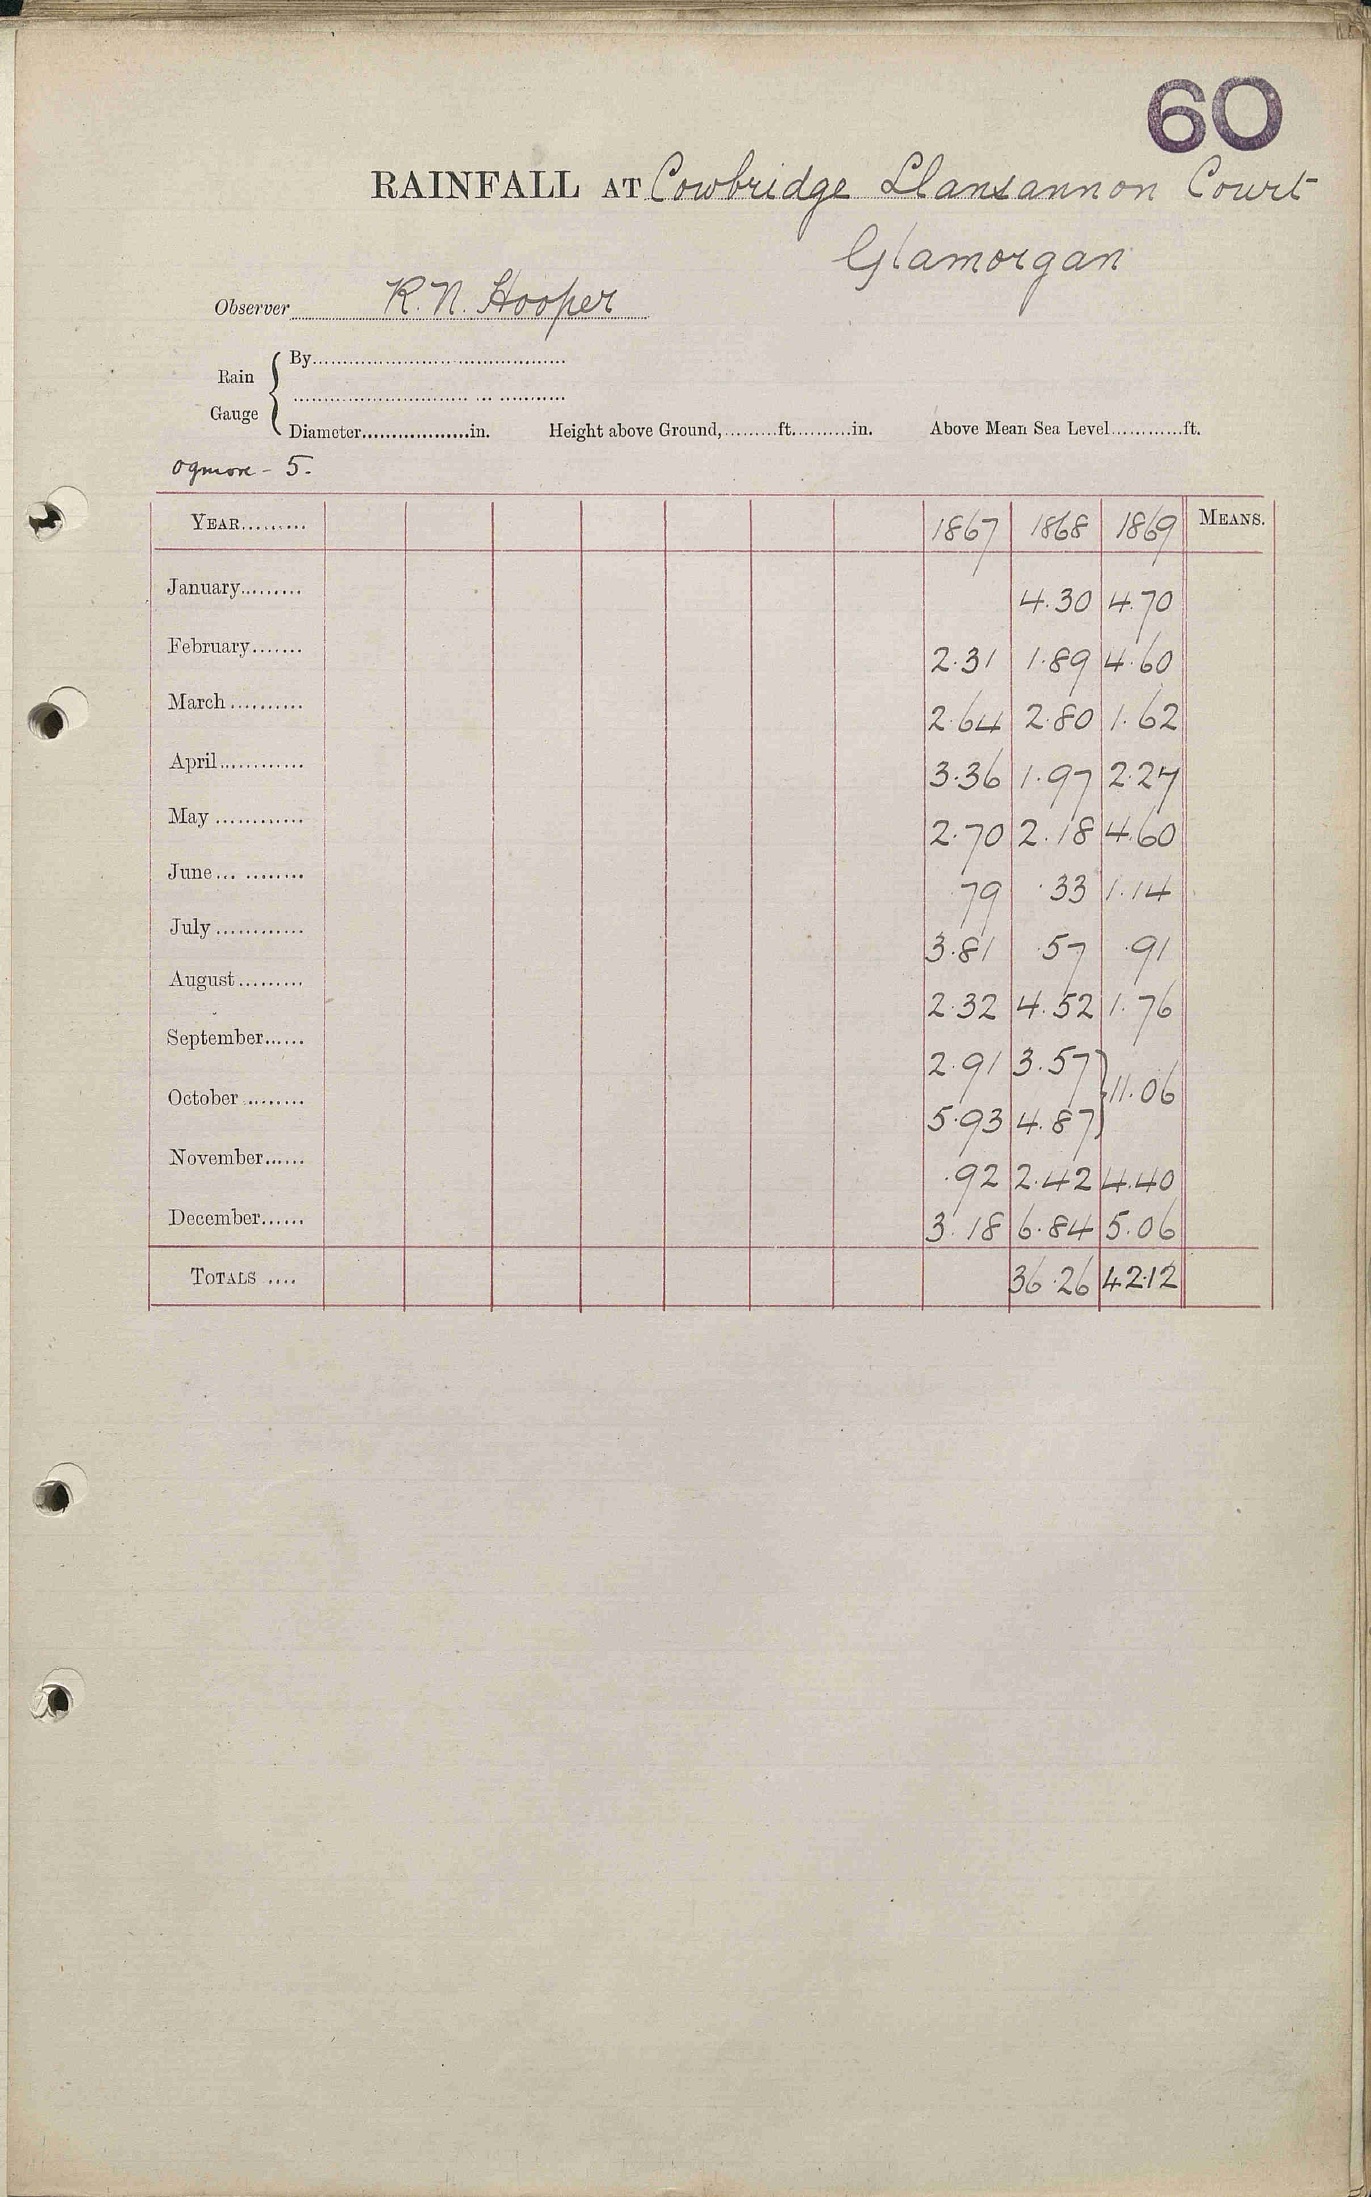 60
RAINFALL AT Cowbridge Llansannon Court
Glamorgan
Observer R. N. Hooper
Rain Gauge { By
Diameter in. Height above Ground, ft. in. Above Mean Sea Level ft.
Ogmore - 5.
YEAR 1867 1868 1869 MEANS.
January 4.30 4.70
February 2.31 1.89 4.60
March 2.64 2.80 1.62
April 3.36 1.97 2.27
May 2.70 2.18 4.60
June .79 .33 1.14
July 3.81 .57 .91
August 2.32 4.52 1.76
September 2.91 3.57 } 11.06
October 5.93 4.87
November .92 2.42 4.40
December 3.18 6.84 5.06
TOTALS 36.26 42.12